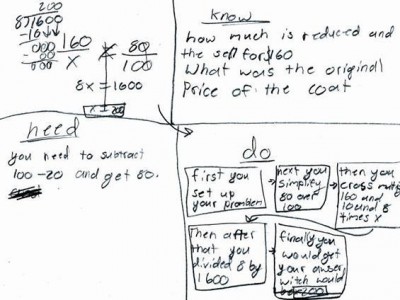 200
8)1600
-16↓↓
000
-00
000
160 = 80
x 100
8x = 1600
x = 200
know
how much is reduced and
the sell for $160
What was the original
Price of the coat
need
you need to subtract
100-20 and get 80.
do
first you
set up
your problem
next you
simplify
80 over
100
then you
cross multiply
160 and
10 and 8
times x
Then after
that you
divided 8 by
1600
finally you
would get
your answer
witch would
be 200